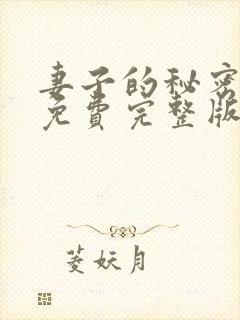 妻子的秘密
免费完整版
菱妖月